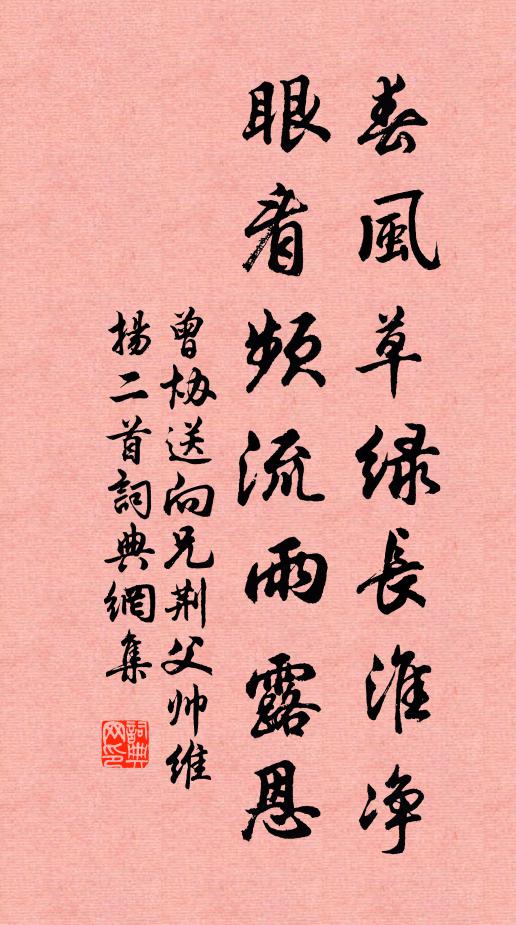 春風草緑長淮净
眼看頻流雨露恩
曾協送向兄荆父帅維
揚二首詞典網集
詞典网印